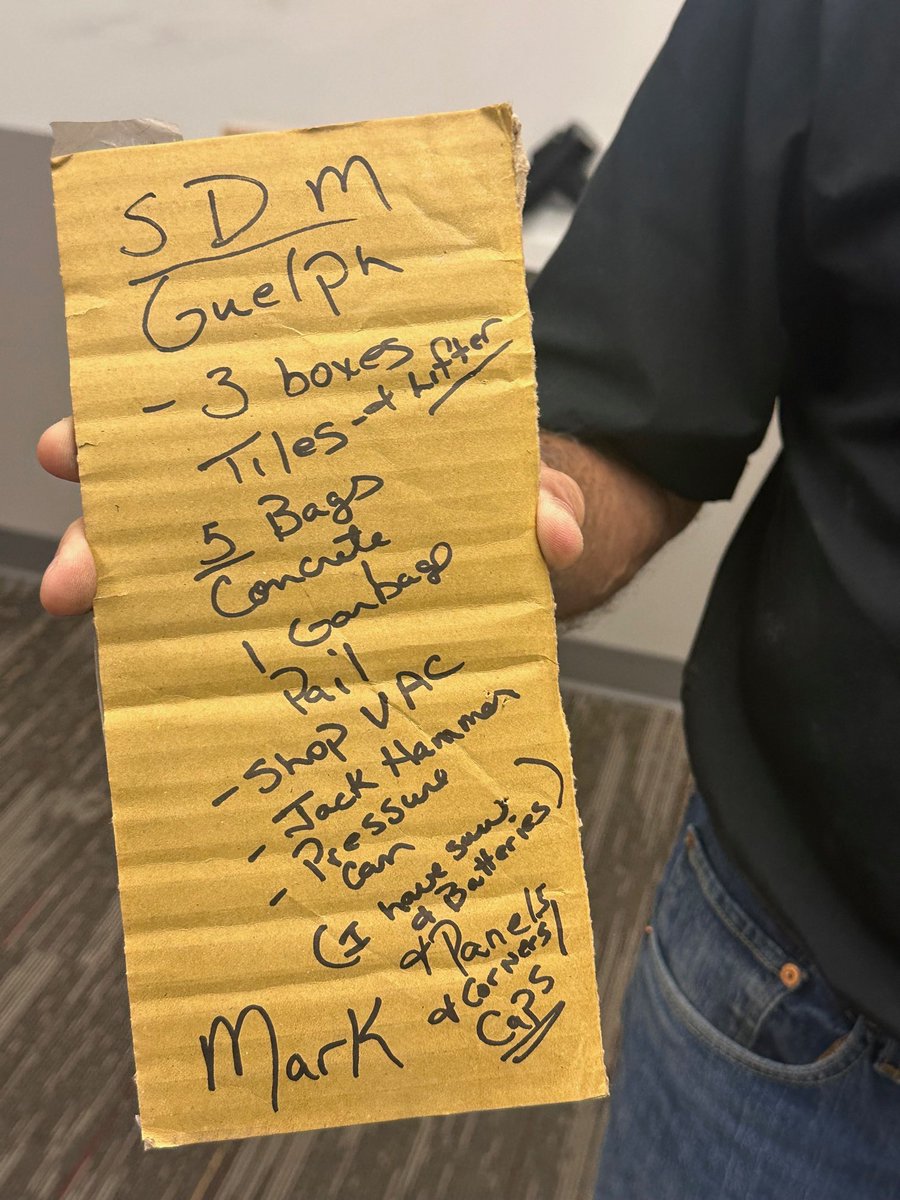 SDM
Guelph
- 3 boxes
Tiles - & Lifter
5 Bags
Concrete
1 Garbage
Pail
- Shop VAC
- Jack Hammer
- Pressure
Can
(I have saw
& Batteries)
& Panels
& Corners/
Caps
Mark